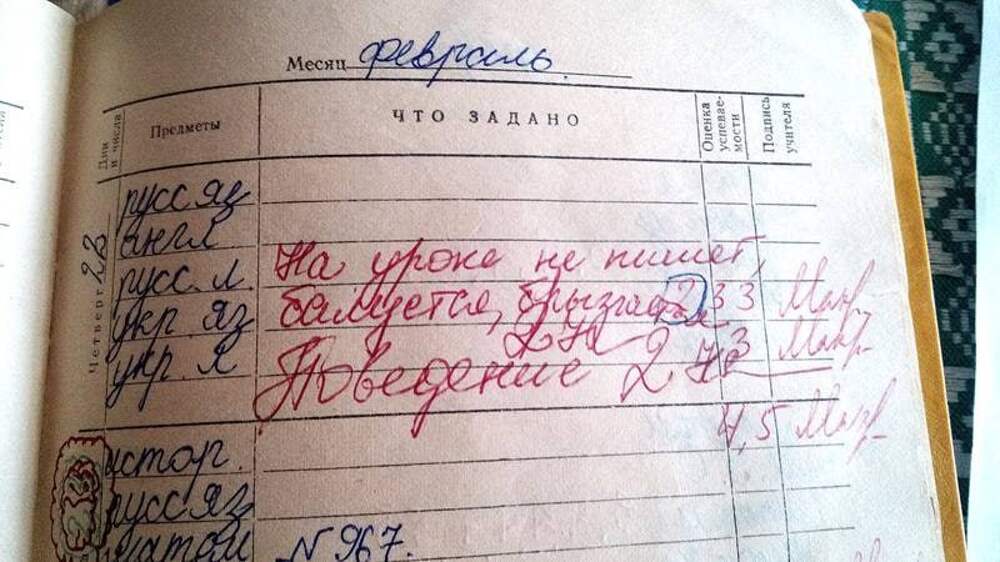 Месяц февраль.
Дни и числа
Предметы
ЧТО ЗАДАНО
Оценка успевае-мости
Подпись учителя
Четверг 23
русс яз
англ.
русс. л.
На уроке не пишет,
укр яз
балуется, брызгается
2 3 3
укр. л
Поведение 2
3
4,5
истор.
русс яз
матем
N 967.